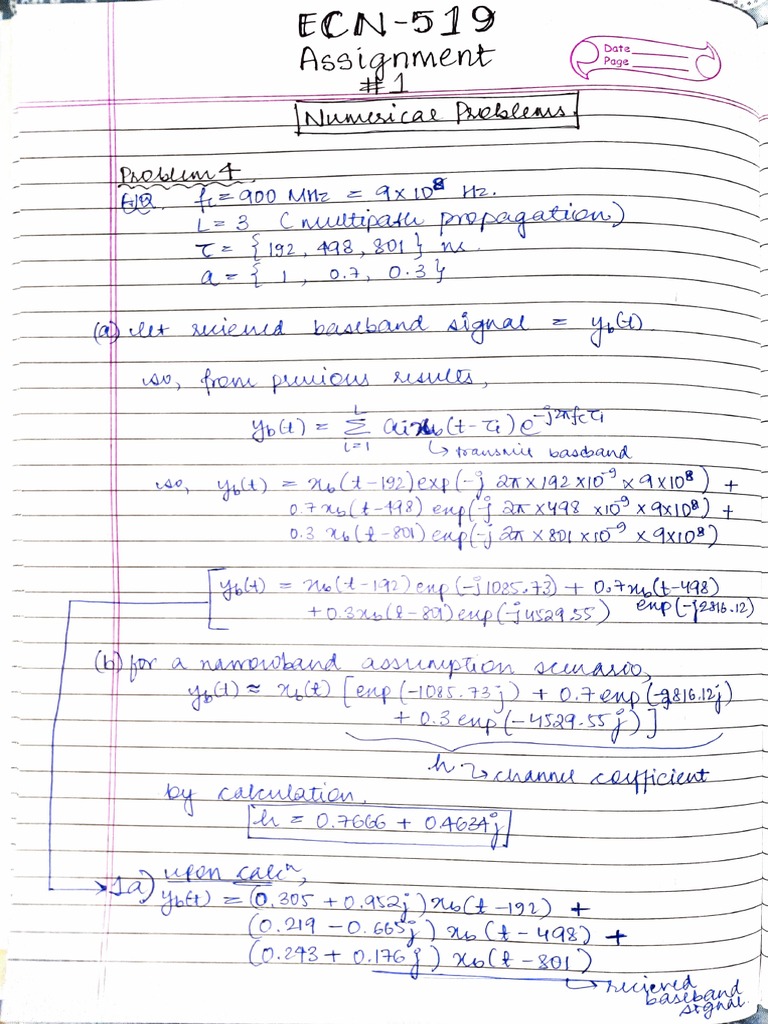 ECN-519
Assignment
#1
Date
Page
Numerical Problems.
Problem 4
fc = 900 MHz = 9×10⁸ Hz.
L = 3 (multipath propagation)
τ = {192, 498, 801} ns.
a = {1, 0.7, 0.3}
(a) let recieved baseband signal = y_b(t)
so, from previous results,
y_b(t) = Σ_{i=1}^{L} a_i x_b(t-τ_i) e^{-j2πfcτ_i}
↳ transmit baseband
so, y_b(t) = x_b(t-192) exp(-j 2π×192×10⁻⁹×9×10⁸) +
0.7 x_b(t-498) exp(-j 2π×498×10⁻⁹×9×10⁸) +
0.3 x_b(t-801) exp(-j 2π×801×10⁻⁹×9×10⁸)
y_b(t) = x_b(t-192) exp(-j1085.73) + 0.7x_b(t-498)
+0.3x_b(t-801) exp(-j4529.55) exp(-j2816.12)
(b) for a narrowband assumption scenario,
y_b(t) ≈ x_b(t) [exp(-1085.73j) + 0.7 exp(-2816.12j)
+ 0.3 exp(-4529.55j)]
h ↳ channel coefficient
by calculation,
h = 0.7666 + 0.4634j
→ 1a) upon calcⁿ,
y_b(t) = (0.305 + 0.952j) x_b(t-192) +
(0.219 - 0.665j) x_b(t-498) +
(0.243 + 0.176j) x_b(t-801)
→ recieved
baseband
signal.